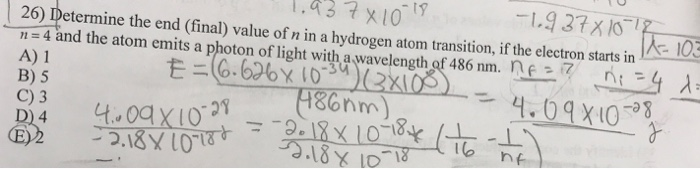 1.937×10⁻¹⁸
-1.937×10⁻¹⁸
26) Determine the end (final) value of n in a hydrogen atom transition, if the electron starts in
λ= 103
n = 4 and the atom emits a photon of light with a wavelength of 486 nm.
nf = ?
ni = 4
λ=
A) 1
B) 5
C) 3
D) 4
E) 2
E = (6.626 × 10⁻³⁴)(3×10⁸)
(486nm)
= 4.09×10⁻²⁸ J
4.09×10⁻²⁸
-2.18×10⁻¹⁸ J
= -2.18×10⁻¹⁸ (1/16 - 1/nf)
-2.18× 10⁻¹⁸